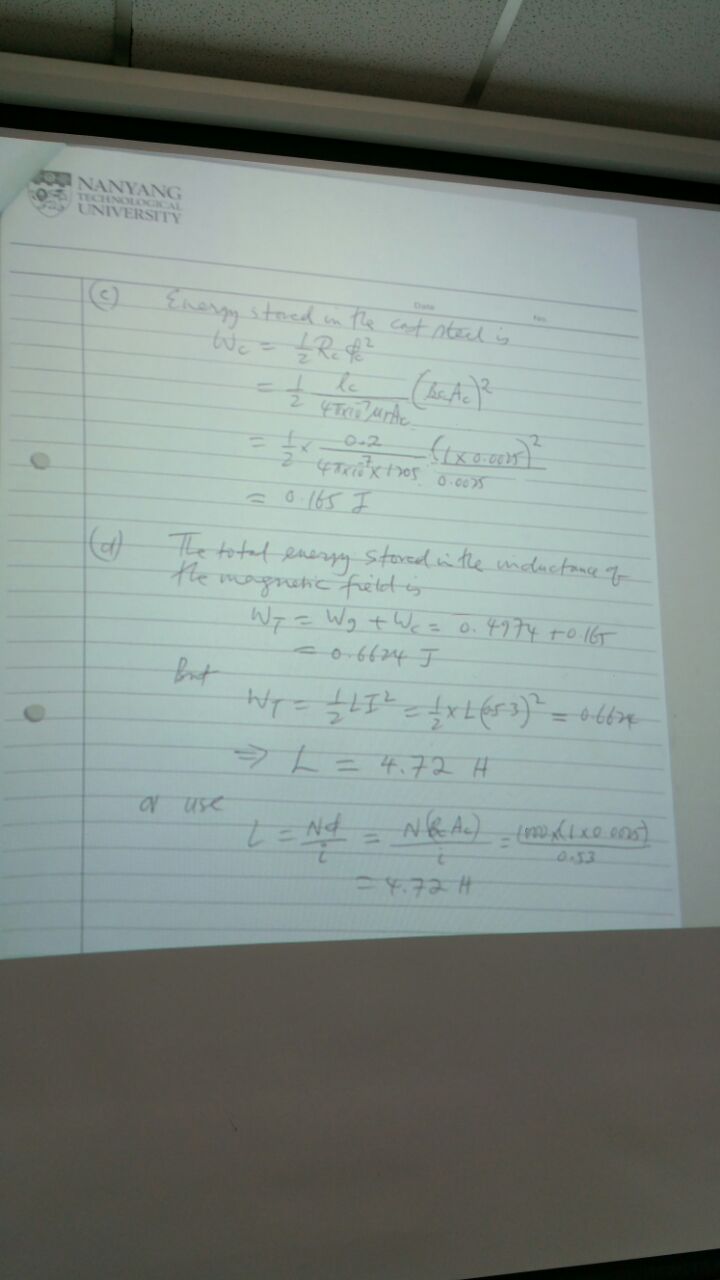 NANYANG
TECHNOLOGICAL
UNIVERSITY
Date
No.
(c) Energy stored in the cast steel is
Wc = 1/2 Rc ϕc²
= 1/2 lc/(4π×10⁻⁷ μr Ac) (Bc Ac)²
= 1/2 × 0.2/(4π×10⁻⁷ × 1205) (1 × 0.0025)²/0.0025
= 0.165 J
(d) The total energy stored in the inductance of
the magnetic field is
WT = Wg + Wc = 0.4974 + 0.165
= 0.6624 J
But
WT = 1/2 LI² = 1/2 × L(0.53)² = 0.6624
⇒ L = 4.72 H
or use
L = Nϕ/i = N(Bc Ac)/i = 1000 × (1 × 0.0025)/0.53
= 4.72 H